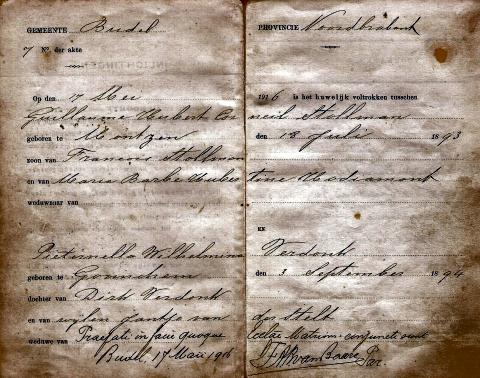 GEMEENTE Budel PROVINCIE Noordbrabant
7 N°. der akte
Op den 17 Mei 1916 is het huwelijk voltrokken tusschen
Guillaume Hubert Corneil Stollman
geboren te Montzen den 18 Juli 1893
zoon van François Stollman
en van Maria Barbe Hubertine Hediamont
weduwnaar van
EN
Pieternella Wilhelmina Verdonk
geboren te Gorinchem den 3 September 1894
dochter van Dirk Verdonk
en van wijlen Jantje van der Stelt
weduwe van
in facie quoque Matrim. conjuncti sunt
Budel, 17 Maii 1916 Par.